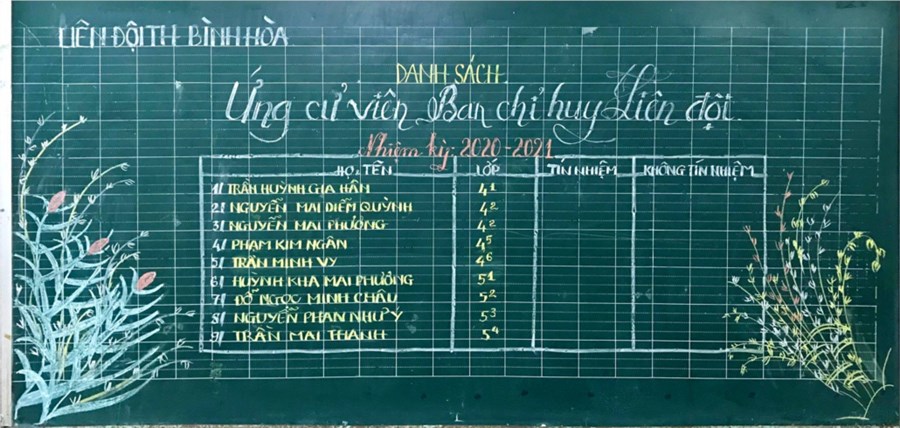 LIÊN ĐỘI TH BÌNH HÒA
DANH SÁCH
Ứng cử viên Ban chỉ huy Liên đội.
Nhiệm kỳ: 2020-2021
HỌ TÊN LỚP TÍN NHIỆM KHÔNG TÍN NHIỆM
1/ TRẦN HUỲNH GIA HÂN 4¹
2/ NGUYỄN MAI DIỄM QUỲNH 4²
3/ NGUYỄN MAI PHƯƠNG 4²
4/ PHẠM KIM NGÂN 4⁵
5/ TRẦN MINH VY 4⁶
6/ HUỲNH KHA MAI PHƯƠNG 5¹
7/ ĐỖ NGỌC MINH CHÂU 5²
8/ NGUYỄN PHAN NHƯ Ý 5³
9/ TRẦN MAI THANH 5⁴